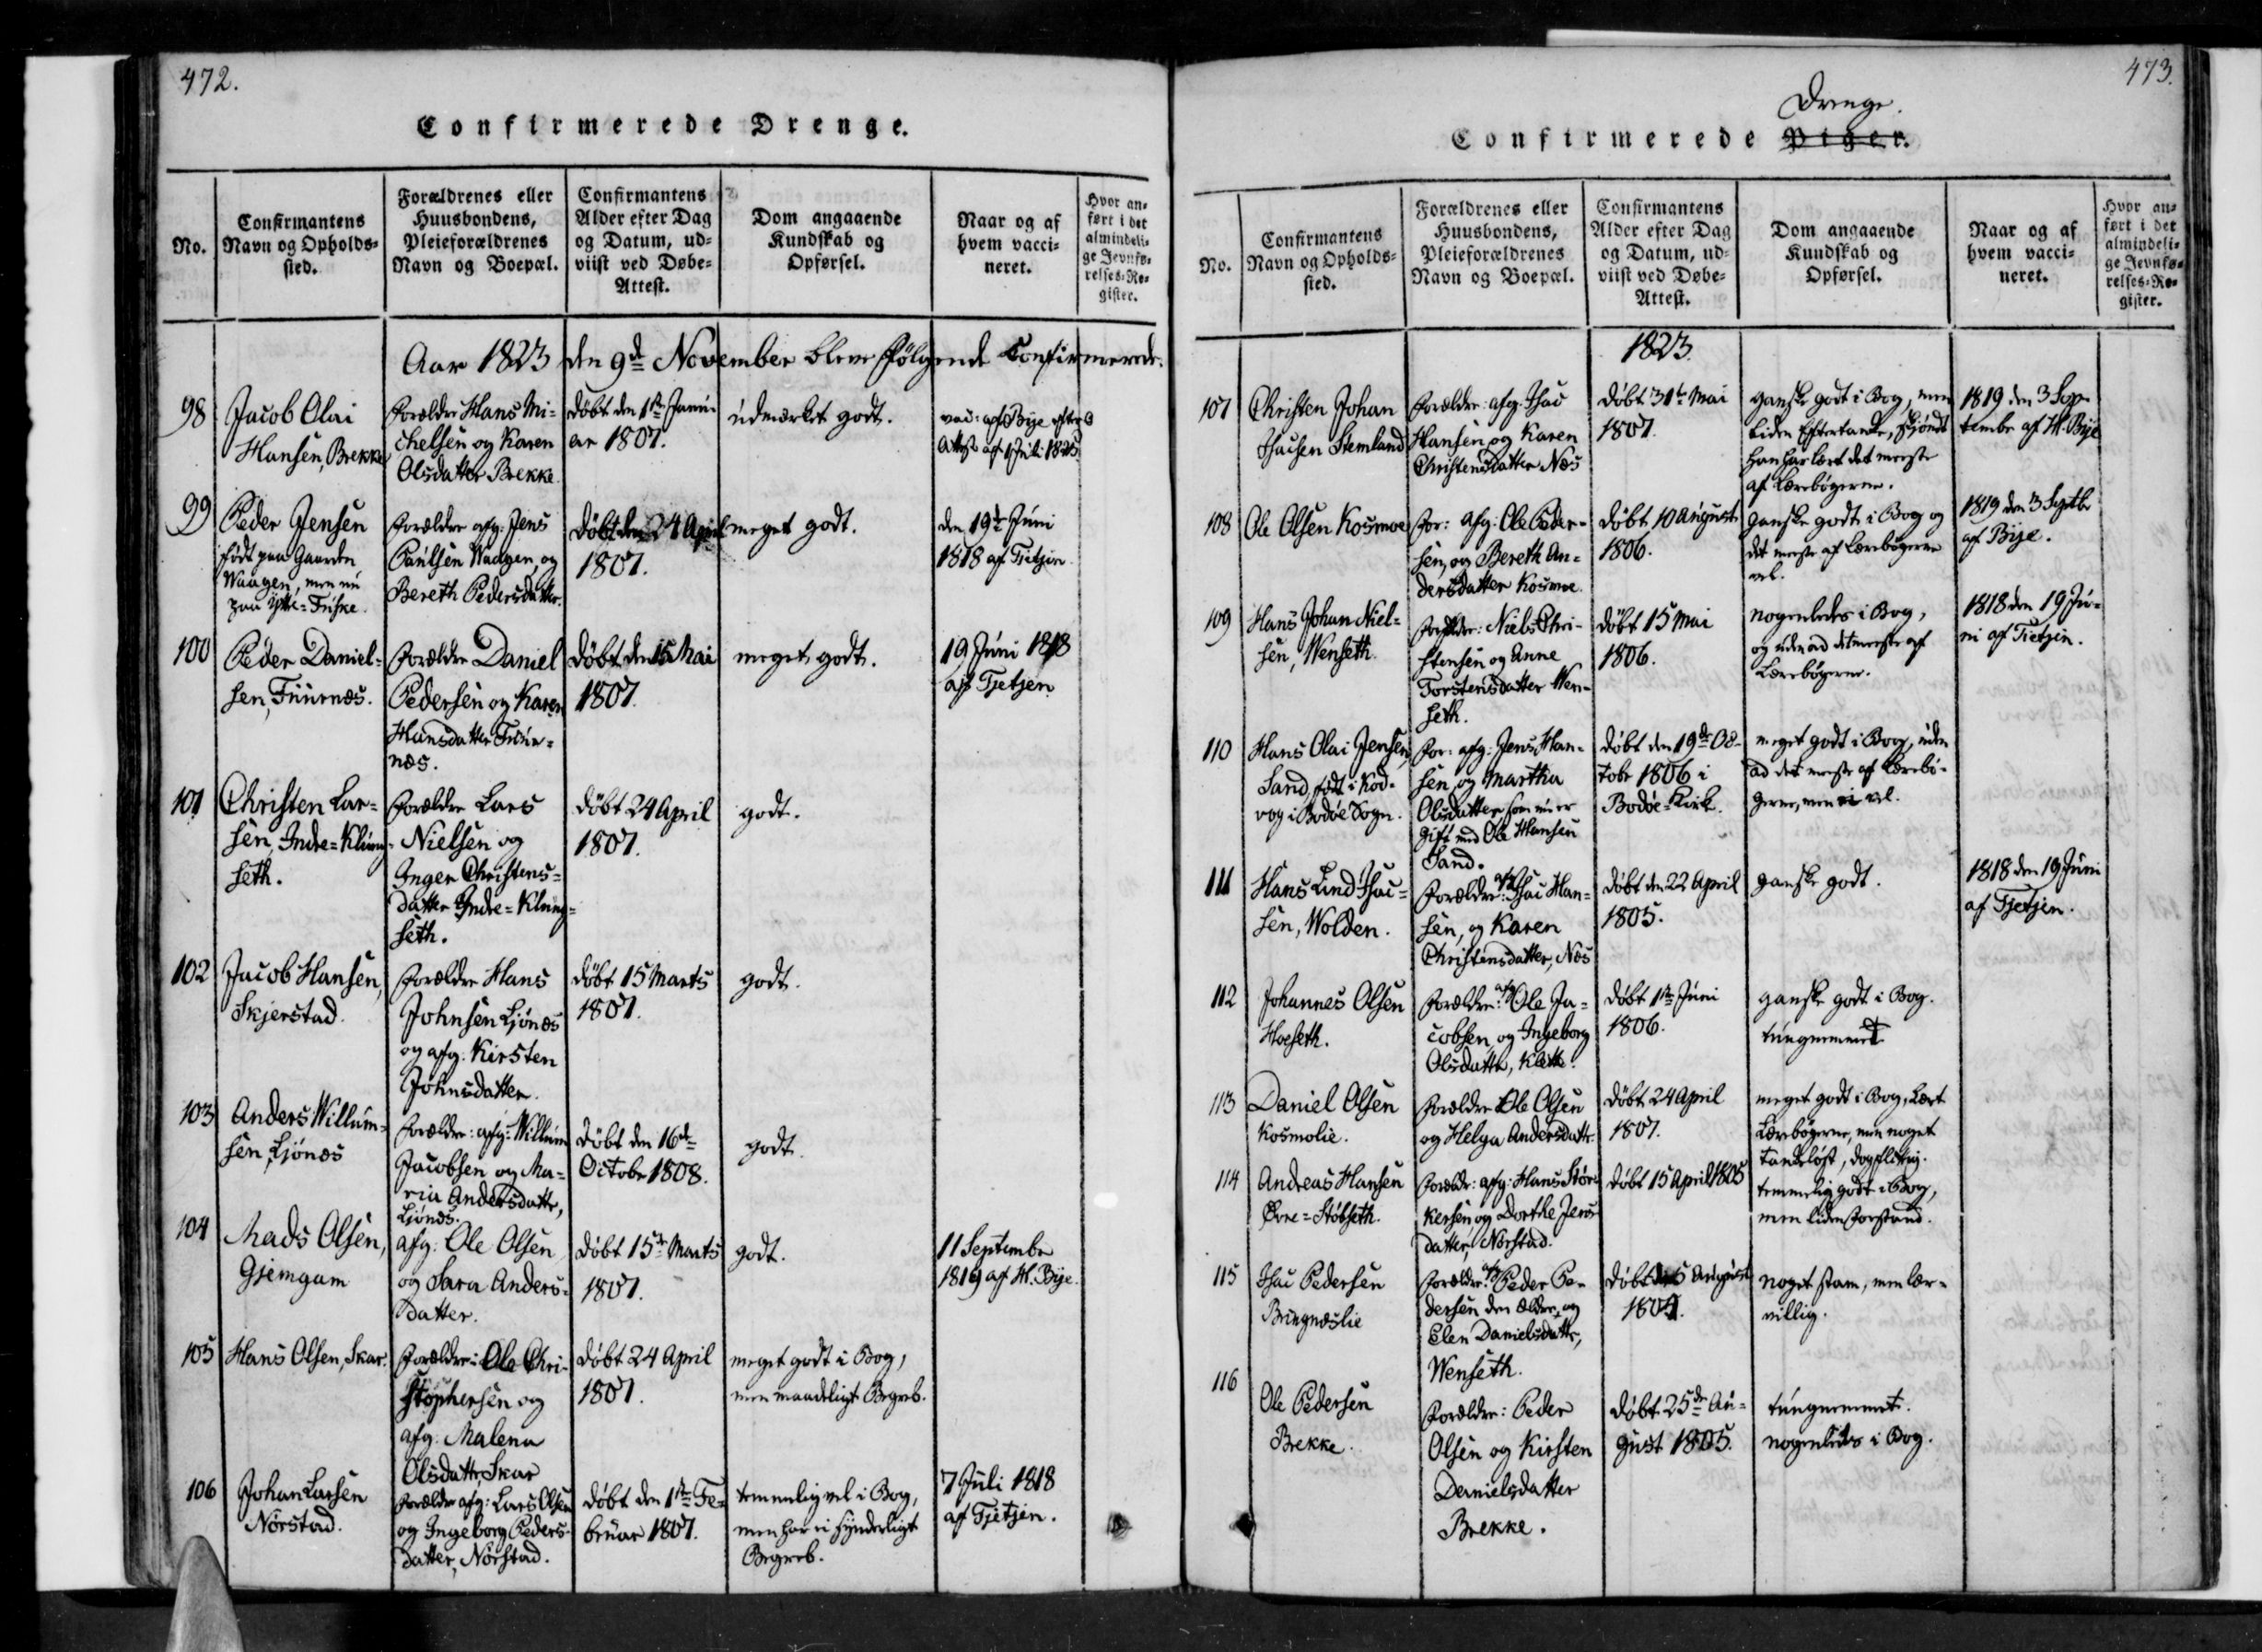 472.
Confirmerede Drenge.
No.
Confirmantens
Navn og Opholds-
sted.
Forældrenes eller
Huusbondens,
Pleieforældrenes
Navn og Boepæl.
Confirmantens
Alder efter Dag
og Datum, ud-
viist ved Døbe-
Attest.
Dom angaaende
Kundskab og
Opførsel.
Naar og af
hvem vacci-
neret.
Hvor an-
ført i det
almindeli-
ge Jevnfø-
relses-Re-
gister.
Aar 1823 den 9de November bleve følgende Confirmerede.
98
Jacob Olai
Hansen, Brekke
Forældre Hans Mi-
chelsen og Karen
Olsdatter Brekke
døbt den 1ste Janu-
ar 1807.
udmærket godt.
vac: af Bye efter
Attest af 1 Juli 1823
99
Peder Jensen
født paa Gaarden
Waagen, men nu
paa Ytte-Fuske.
Forældre afg: Jens
Paulsen Waagen, og
Bereth Pedersdatter.
døbt den 24 April
1807.
meget godt.
den 19de Juni
1818 af Tietjen
100
Peder Daniel-
sen, Fuurnæs.
Forældre Daniel
Pedersen og Karen
Hansdatter Fuur-
næs.
døbt den 15 Mai
1807.
meget godt.
19 Juni 1818
af Tjetjen
101
Christen Lar-
sen, Indre-Klung-
seth.
Forældre Lars
Nielsen og
Inger Christens-
datter Indre-Klung-
seth.
døbt 24 April
1807.
godt.
102
Jacob Hansen,
Skjerstad.
Forældre Hans
Johnsen Ljønes
og afg: Kirsten
Johnsdatter.
døbt 15 Marts
1807.
godt.
103
Anders Willum-
sen, Ljønæs
Forældre: afg: Willum
Jacobsen og Ma-
ria Andersdatter,
Ljønæs.
døbt den 16de
Octobr 1808.
godt.
104
Mads Olsen,
Gjemgam
afg: Ole Olsen
og Sara Anders-
datter.
døbt 15de Marts
1807.
godt.
11 Septembr
1819 af H. Bye.
105
Hans Olsen, Skar.
Forældre: Ole Chri-
stophersen og
afg: Malena
Olsdatter, Skar
døbt 24 April
1807.
meget godt i Bog,
men maadeligt Begreb.
106
Johan Larsen
Nørstad.
Forældre afg: Lars Olsen
og Ingeborg Peders-
datter, Nørstad.
døbt den 1ste Fe-
bruar 1807.
temmelig vel i Bog,
men har ei synderligt
Begreb.
7 Juli 1818
af Tjetjen.
473.
Drenge.
Confirmerede Piger.
No.
Confirmantens
Navn og Opholds-
sted.
Forældrenes eller
Huusbondens,
Pleieforældrenes
Navn og Boepæl.
Confirmantens
Alder efter Dag
og Datum, ud-
viist ved Døbe-
Attest.
Dom angaaende
Kundskab og
Opførsel.
Naar og af
hvem vacci-
neret.
Hvor an-
ført i det
almindeli-
ge Jevnfø-
relses-Re-
gister.
1823.
107
Christen Johan
Isacsen Stemland
Forældre: afg: Isac
Hansen og Karen
Christensdatter Næs
døbt 31te Mai
1807.
ganske godt i Bog, men
liden Eftertanke, skjøndt
han har lært det meeste
af Lærebøgerne.
1819 den 3 Sep-
tembr af H. Bye
108
Ole Olsen Kosmoe
For: afg: Ole Peder-
sen, og Bereth An-
dersdatter Kosmoe.
døbt 10 August
1806.
ganske godt i Bog og
det meeste af Lærebøgerne
vel.
1819 den 3 Septbr
af Bye.
109
Hans Johan Niel-
sen, Wenseth.
Forældre: Niels Chri-
stensen og Anne
Torstensdatter Wen-
seth.
døbt 15 Mai
1806.
nogenledes i Bog,
og uden ad det meeste af
Lærebøgerne.
1818 den 19 Ju-
ni af Tietjen.
110
Hans Olai Jensen,
Sand, født i Kod-
vog i Bodøe Sogn.
For: afg: Jens Han-
sen og Martha
Olsdatter, som nu er
gift med Ole Hansen
Sand.
døbt den 19de Oc-
tobr 1806 i
Bodøe-Kirk.
meget godt i Bog, uden
ad det meeste af Lærebø-
gerne, men ei vel.
111
Hans Lind Isac-
sen, Wolden.
Forældre: afg Isac Han-
sen, og Karen
Christensdatter, Næs
døbt den 22 April
1805.
ganske godt.
1818 den 19 Juni
af Tjetjen.
112
Johannes Olsen
Hoeseth.
Forældre: afg Ole Ja-
cobsen og Ingeborg
Olsdatter, Klette.
døbt 1ste Juni
1806.
ganske godt i Bog.
tungnemmet
113
Daniel Olsen
Kosmolie.
Forældre Ole Olsen
og Helga Andersdatter.
døbt 24 April
1807.
meget godt i Bog, Lært
Lærebøgerne, men noget
tankeløst, dog flittig.
114
Andreas Hansen
Øvre-Støbseth.
Forældr: afg: Hans Stør-
kersen og Dorthe Jens-
datter, Nørstad.
døbt 15 April 1805
temmelig godt i Bog,
men liden Forstand.
115
Isac Pedersen
Bringnæslie
Forældre: afg Peder Pe-
dersen den ældre, og
Elen Danielsdatter,
Wenseth.
døbt den 5 August
1804.
noget stam, men lær-
villig.
116
Ole Pedersen
Brekke.
Forældre: Peder
Olsen og Kirsten
Danielsdatter
Brekke.
døbt 25de Au-
gust 1805.
tungnemmet.
nogenledes i Bog.